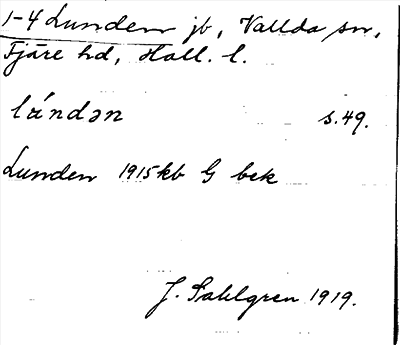 1-4 Lunden jb, Vallda sn,
Fjäre hd, Hall. l.
lúndən s.49.
Lunden 1915 kb G bek
J. Sahlgren 1919.